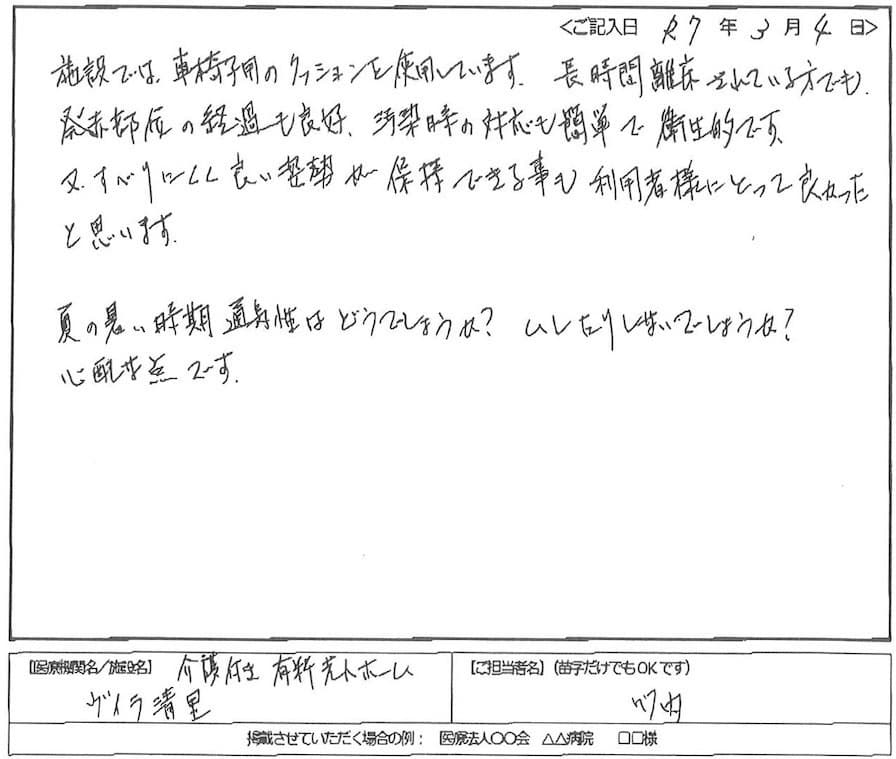 <ご記入日 R7 年 3 月 4 日>
施設では、車椅子用のクッションを使用しています。長時間離床されている方でも、
発赤部位の経過も良好、汚染時の対応も簡単で衛生的です。
又、すべりにくく良い姿勢が保持できる事も利用者様にとって良かった
と思います。
夏の暑い時期通気性はどうでしょうか? ムレたりしないでしょうか?
心配な点です。
【医療機関名/施設名】 介護付き有料老人ホーム
ヴィラ清里
【ご担当者名】(苗字だけでもOKです)
掲載させていただく場合の例: 医療法人〇〇会 △△病院 □□様